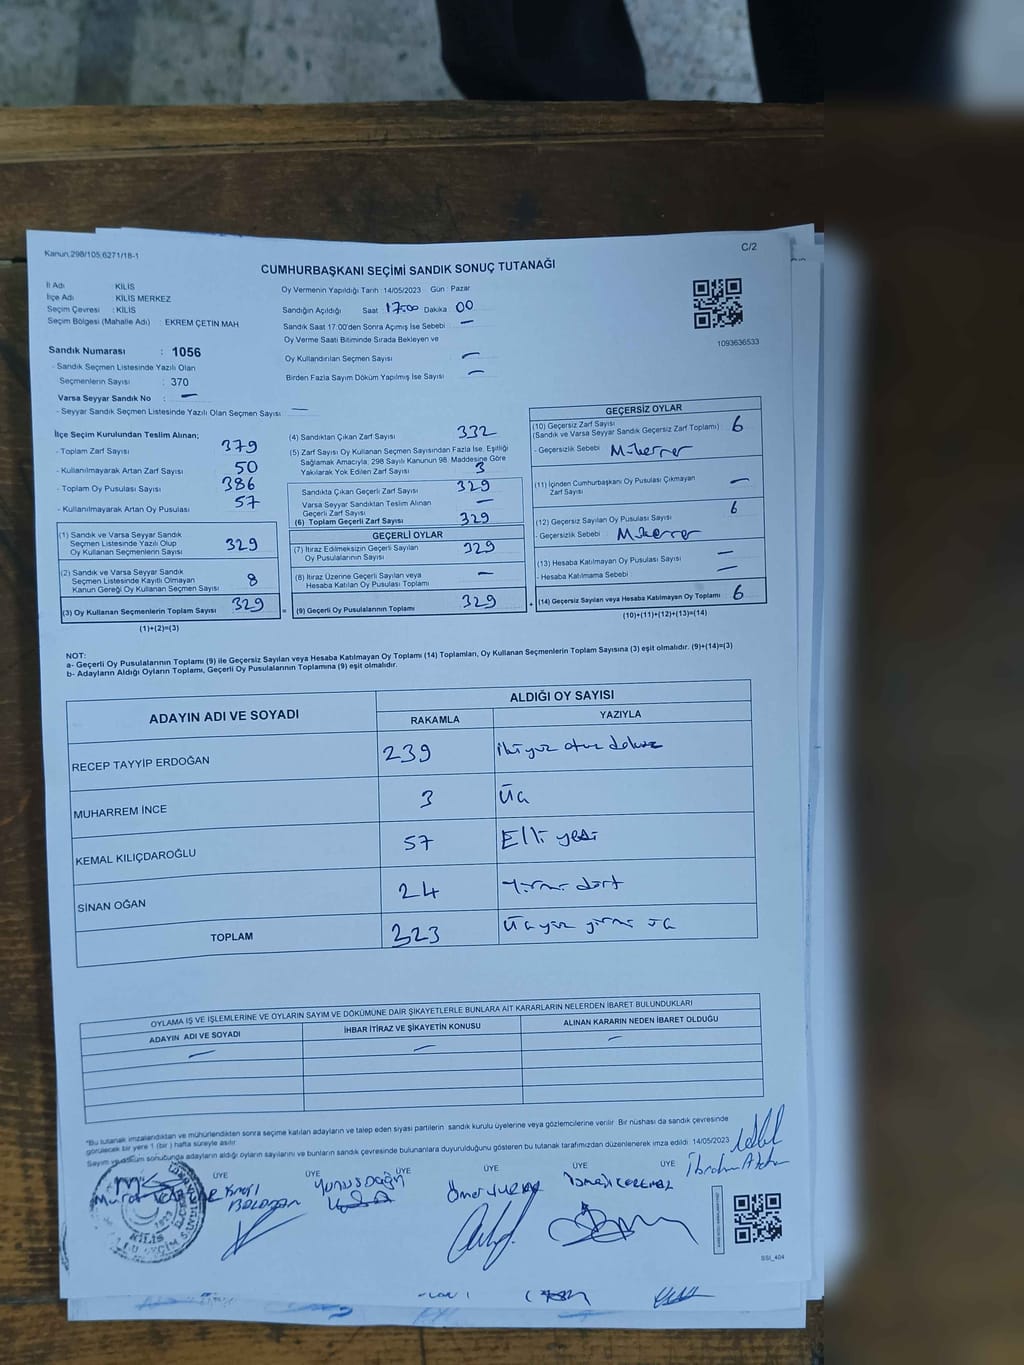 Kanun,298/105,6271/18-1
C/2
CUMHURBAŞKANI SEÇİMİ SANDIK SONUÇ TUTANAĞI
İl Adı : KİLİS
İlçe Adı : KİLİS MERKEZ
Seçim Çevresi : KİLİS
Seçim Bölgesi (Mahalle Adı) : EKREM ÇETİN MAH
Sandık Numarası : 1056
- Sandık Seçmen Listesinde Yazılı Olan
Seçmenlerin Sayısı : 370
Varsa Seyyar Sandık No : —
- Seyyar Sandık Seçmen Listesinde Yazılı Olan Seçmen Sayısı : —
Oy Vermenin Yapıldığı Tarih : 14/05/2023 Gün : Pazar
Sandığın Açıldığı Saat : 17:00 Dakika 00
Sandık Saat 17:00'den Sonra Açımış İse Sebebi : —
Oy Verme Saati Bitiminde Sırada Bekleyen ve
Oy Kullandırılan Seçmen Sayısı : —
Birden Fazla Sayım Döküm Yapılmış İse Sayısı : —
1093636533
İlçe Seçim Kurulundan Teslim Alınan;
- Toplam Zarf Sayısı : 379
- Kullanılmayarak Artan Zarf Sayısı : 50
- Toplam Oy Pusulası Sayısı : 386
- Kullanılmayarak Artan Oy Pusulası : 57
(1) Sandık ve Varsa Seyyar Sandık
Seçmen Listesinde Yazılı Olup
Oy Kullanan Seçmenlerin Sayısı : 329
(2) Sandık ve Varsa Seyyar Sandık
Seçmen Listesinde Kayıtlı Olmayan
Kanun Gereği Oy Kullanan Seçmen Sayısı : 8
(3) Oy Kullanan Seçmenlerin Toplam Sayısı : 329
(1)+(2)=(3)
(4) Sandıktan Çıkan Zarf Sayısı : 332
(5) Zarf Sayısı Oy Kullanan Seçmen Sayısından Fazla İse, Eşitliği
Sağlamak Amacıyla, 298 Sayılı Kanunun 98. Maddesine Göre
Yakılarak Yok Edilen Zarf Sayısı : 3
Sandıkta Çıkan Geçerli Zarf Sayısı : 329
Varsa Seyyar Sandıktan Teslim Alınan
Geçerli Zarf Sayısı : —
(6) Toplam Geçerli Zarf Sayısı : 329
GEÇERLİ OYLAR
(7) İtiraz Edilmeksizin Geçerli Sayılan
Oy Pusulalarının Sayısı : 329
(8) İtiraz Üzerine Geçerli Sayılan veya
Hesaba Katılan Oy Pusulası Toplamı : —
= (9) Geçerli Oy Pusulalarının Toplamı : 329
GEÇERSİZ OYLAR
(10) Geçersiz Zarf Sayısı : 6
(Sandık ve Varsa Seyyar Sandık Geçersiz Zarf Toplamı)
- Geçersizlik Sebebi : Mükerrer
(11) İçinden Cumhurbaşkanı Oy Pusulası Çıkmayan
Zarf Sayısı : —
(12) Geçersiz Sayılan Oy Pusulası Sayısı : 6
- Geçersizlik Sebebi : Mükerrer
(13) Hesaba Katılmayan Oy Pusulası Sayısı : —
- Hesaba Katılmama Sebebi : —
+ (14) Geçersiz Sayılan veya Hesaba Katılmayan Oy Toplamı : 6
(10)+(11)+(12)+(13)=(14)
NOT:
a- Geçerli Oy Pusulalarının Toplamı (9) ile Geçersiz Sayılan veya Hesaba Katılmayan Oy Toplamı (14) Toplamları, Oy Kullanan Seçmenlerin Toplam Sayısına (3) eşit olmalıdır. (9)+(14)=(3)
b- Adayların Aldığı Oyların Toplamı, Geçerli Oy Pusulalarının Toplamına (9) eşit olmalıdır.
ADAYIN ADI VE SOYADI
ALDIĞI OY SAYISI
RAKAMLA YAZIYLA
RECEP TAYYİP ERDOĞAN 239 ikiyüz otuz dokuz
MUHARREM İNCE 3 Üç
KEMAL KILIÇDAROĞLU 57 Elli yedi
SİNAN OĞAN 24 Yirmi dört
TOPLAM 323 Üçyüz yirmi üç
OYLAMA İŞ VE İŞLEMLERİNE VE OYLARIN SAYIM VE DÖKÜMÜNE DAİR ŞİKAYETLERLE BUNLARA AİT KARARLARIN NELERDEN İBARET BULUNDUKLARI
ADAYIN ADI VE SOYADI İHBAR İTİRAZ VE ŞİKAYETİN KONUSU ALINAN KARARIN NEDEN İBARET OLDUĞU
— — —
"Bu tutanak imzalandıktan ve mühürlendikten sonra seçime katılan adayların ve talep eden siyasi partilerin sandık kurulu üyelerine veya gözlemcilerine verilir. Bir nüshası da sandık çevresinde
görülecek bir yere 1 (bir) hafta süreyle asılır.
Sayım ve döküm sonucunda adayların aldığı oyların sayılarını ve bunların sandık çevresinde bulunanlara duyurulduğunu gösteren bu tutanak tarafımızdan düzenlenerek imza edildi. 14/05/2023
ÜYE ÜYE ÜYE ÜYE ÜYE ÜYE
Murat
Yunus Dağrı
Ömer
İsmail
İbrahim
KİLİS
2023
SSI_404